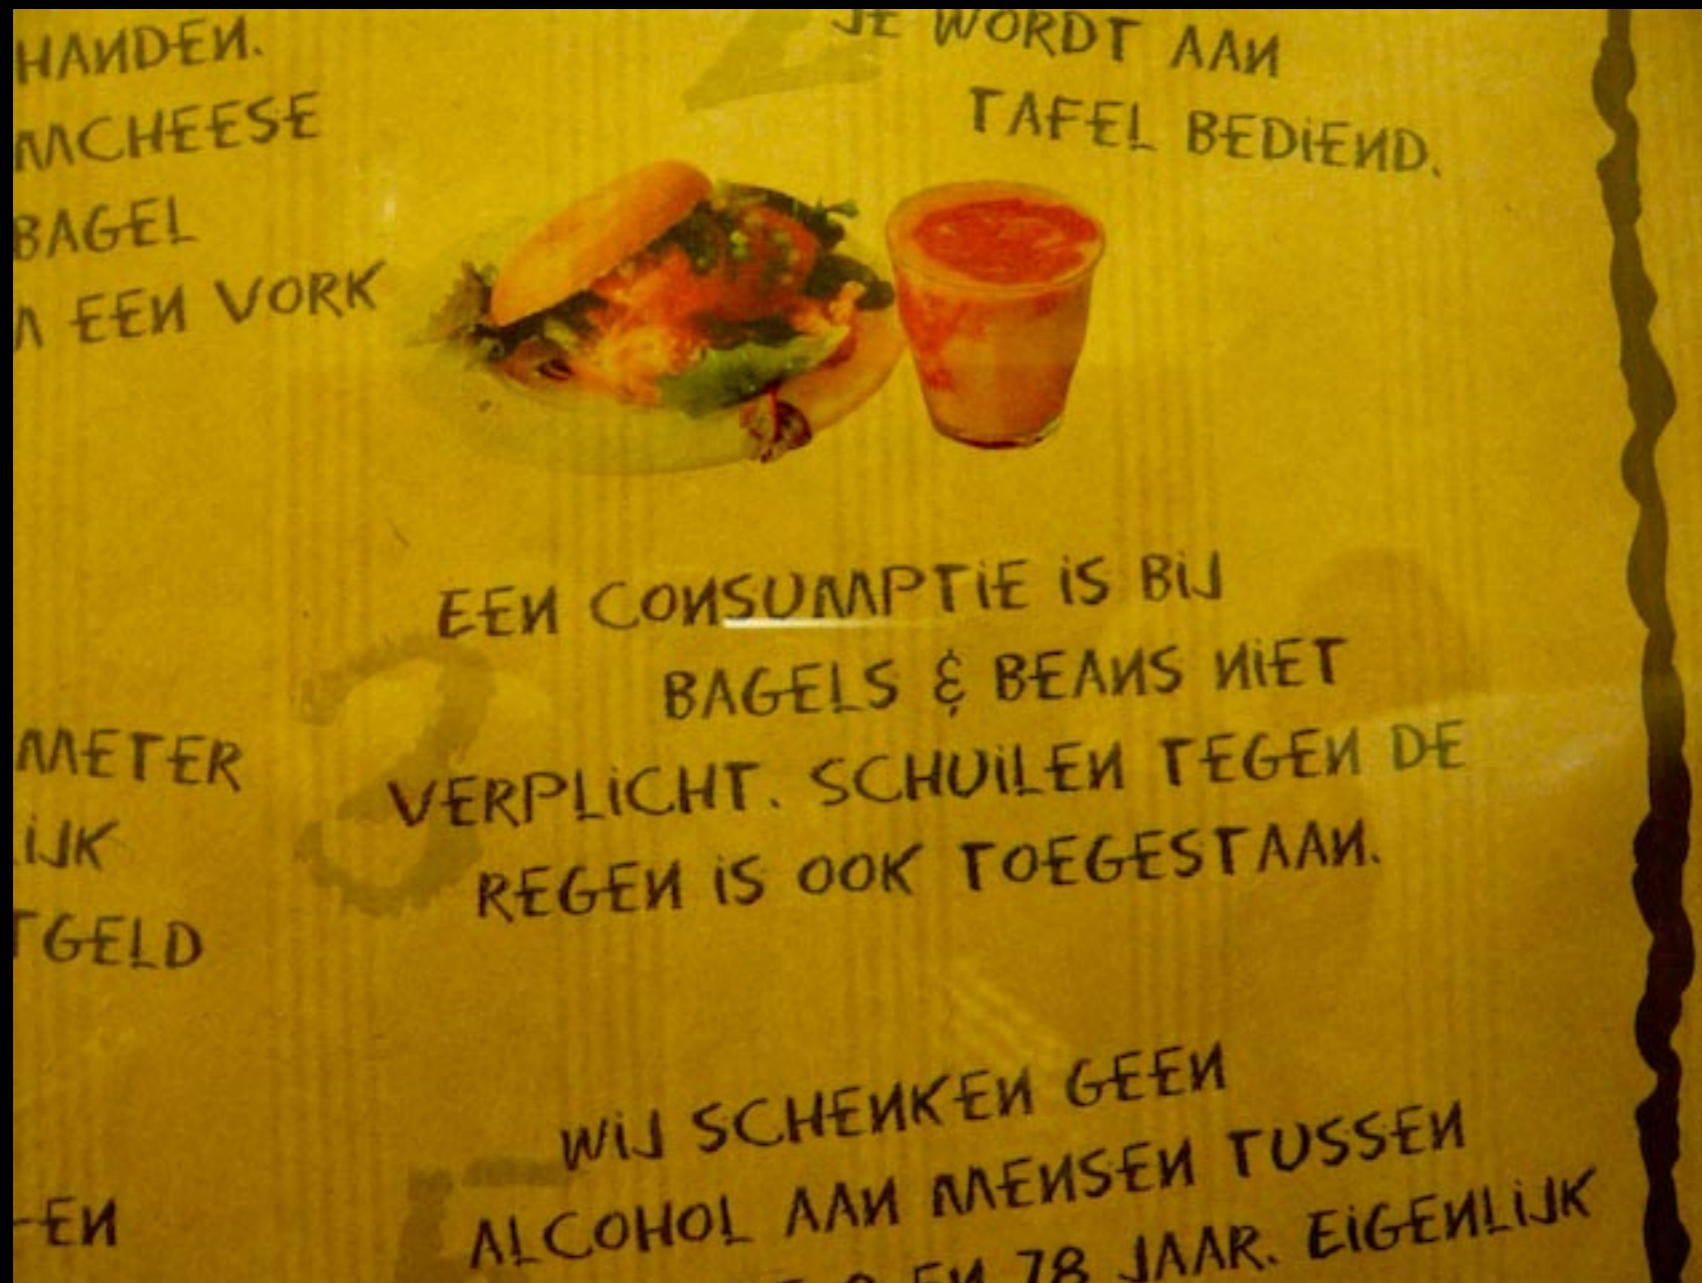 HANDEN.
MCHEESE
BAGEL
EEN VORK
2
JE WORDT AAN
TAFEL BEDIEND.
METER
IJK
TGELD
3
EEN CONSUMPTIE IS BIJ
BAGELS & BEANS NIET
VERPLICHT. SCHUILEN TEGEN DE
REGEN IS OOK TOEGESTAAN.
EN
5
WIJ SCHENKEN GEEN
ALCOHOL AAN MENSEN TUSSEN
EN 78 JAAR. EIGENLIJK